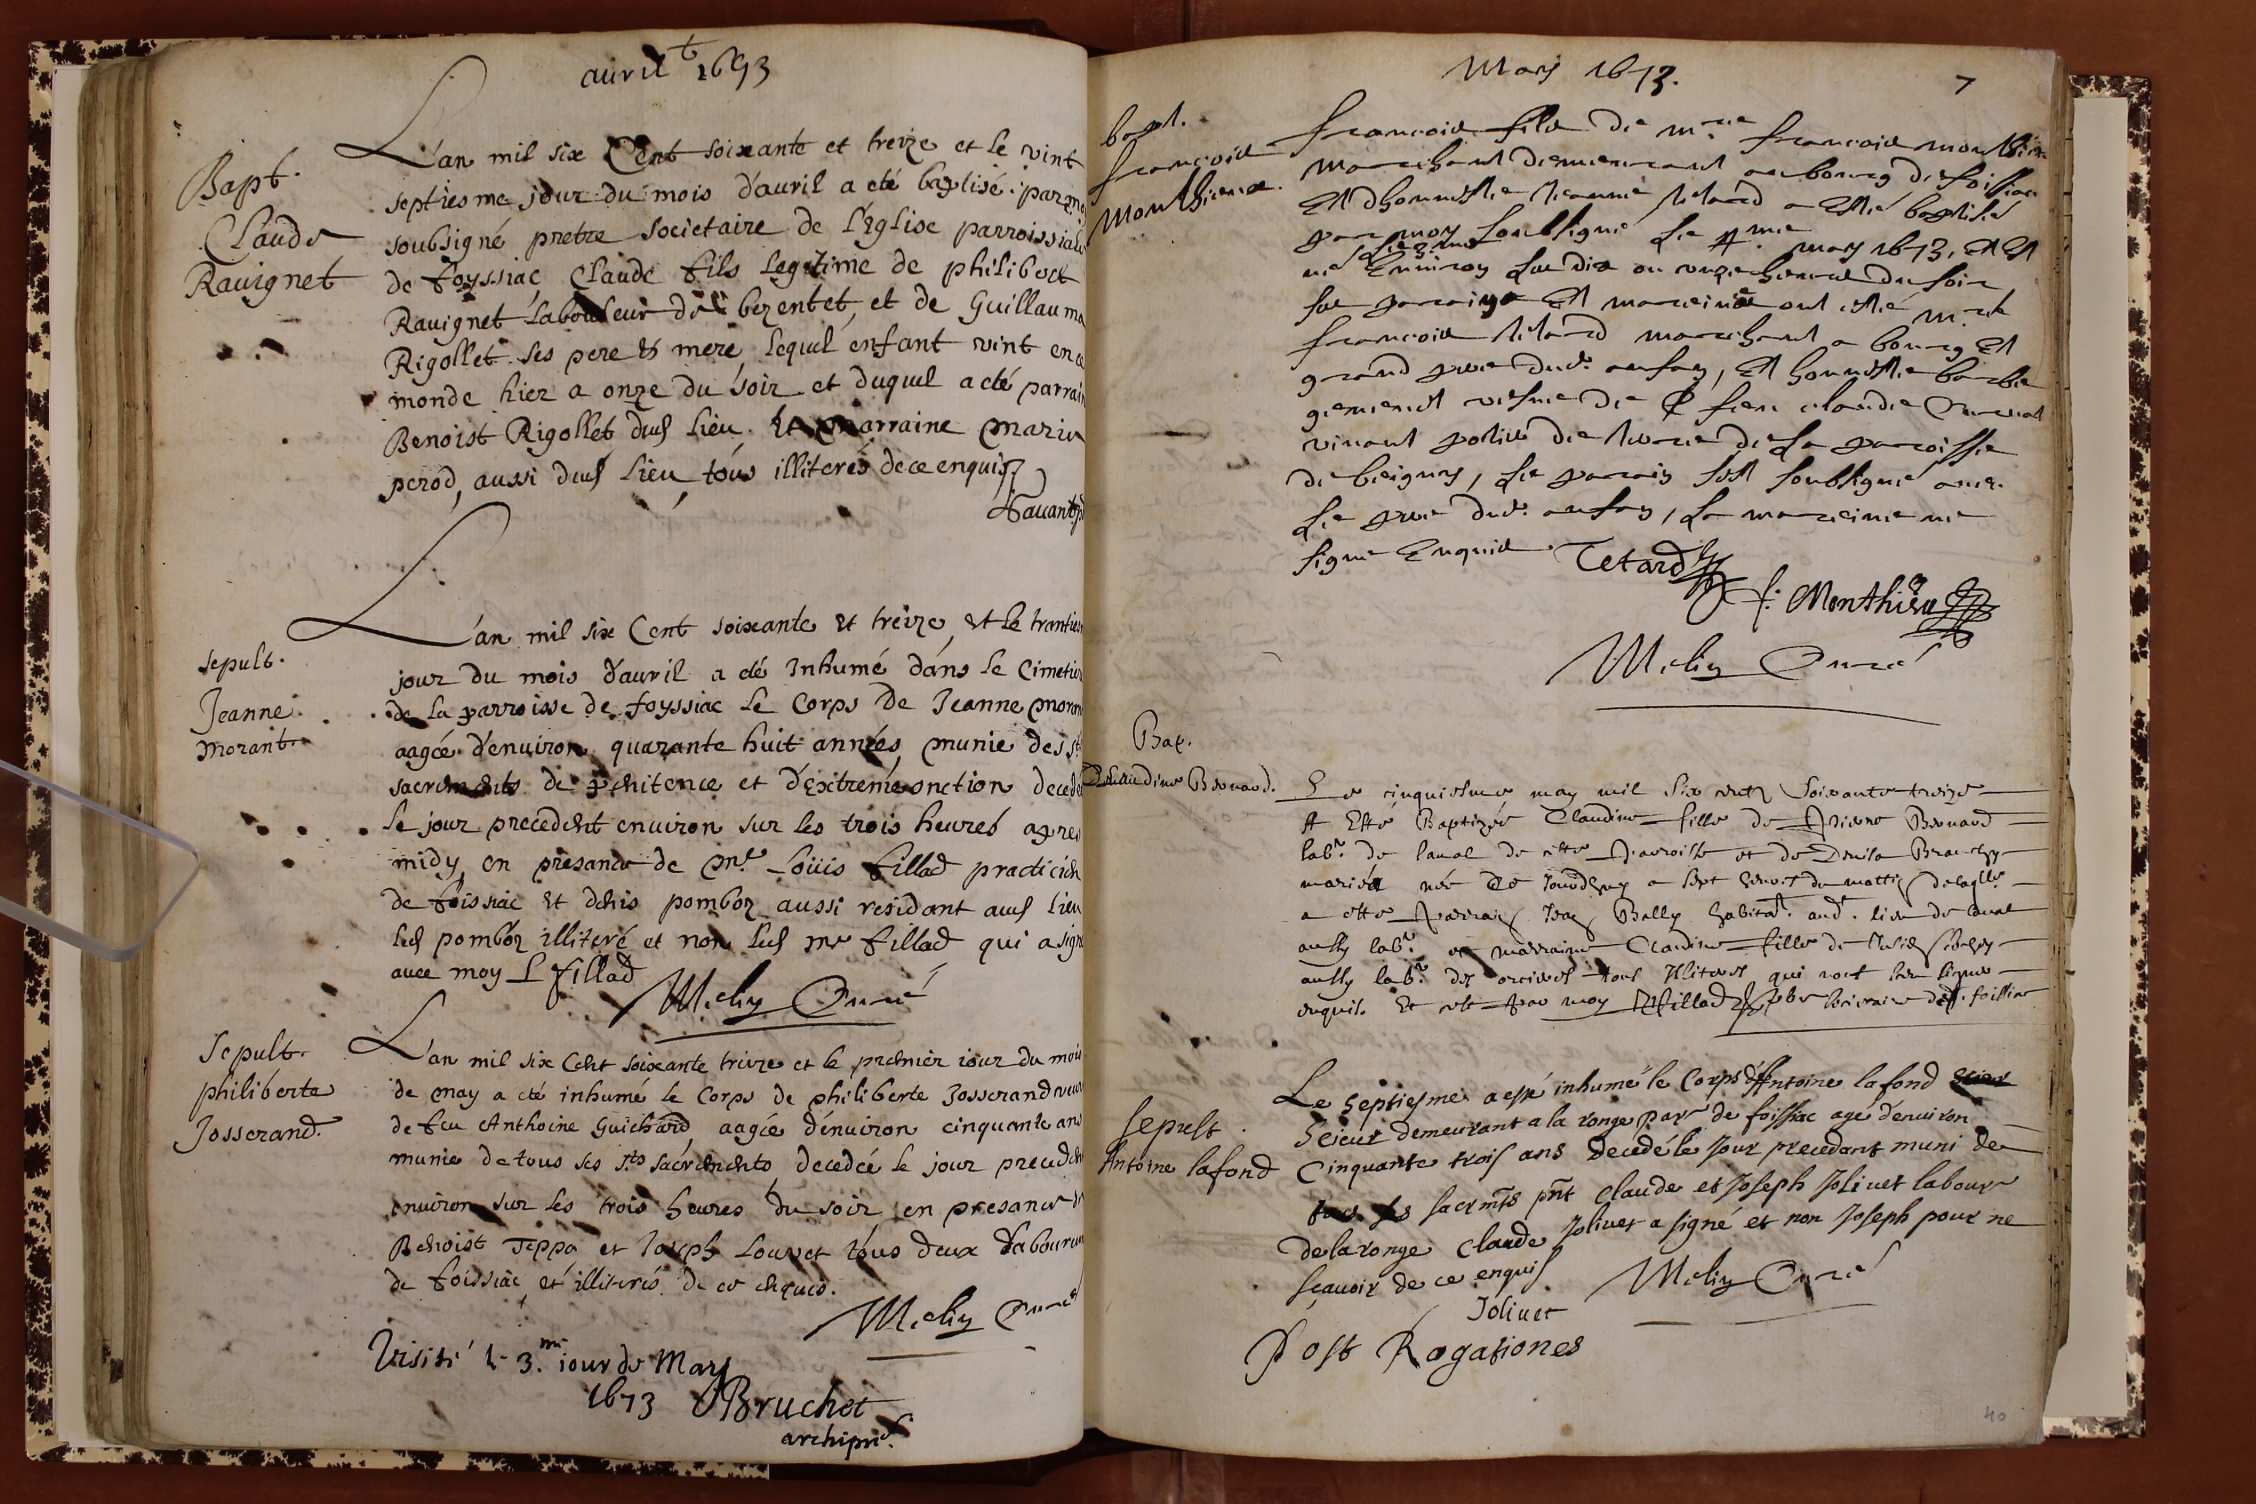 auril 1673
Bapt.
Claude
Rauignet
L'an mil six Cent soixante et treize et le vint
septiesme jour du mois d'auril a eté baptisé par moy
soubsigné pretre societaire de l'Eglise parroissiale
de foyssiac Claude fils legitime de philibert
Rauignet laboureur de bezentet, et de Guillauma
Rigollet ses pere et mere, lequel enfant vint en ce
monde hier a onze du soir et duquel a eté parrain
Benoist Rigollet dud lieu. Et marraine Marie
perod, aussi dud lieu, tous illiteres de ce enquis
sepult.
Jeanne
morant.
L'an mil six Cent soixante et treize, et le trantiesm
jour du mois d'auril a eté Inhumé dans le Cimetier
de la parroisse de foyssiac le Corps de Jeanne moran
aagée d'enuiron quarante huit années, munie des sts
sacrements de penitence et d'Extreme onction decedée
le jour precedent enuiron sur les trois heures apres
midy, en presance de Mre Loüis fillad practicien
de foissiac et denis pombor aussi residant aud lieu
led pombor illiteré et non led mre fillad qui a signé
auec moy L fillad
Melin Curé
Sepult.
philiberte
Josserand.
L'an mil six Cent soixante treize et le premier iour du mois
de may a eté inhumé le Corps de philiberte Josserand veuue
de feu Anthoine Guichard aagée d'enuiron cinquante ans
munie de tous ses sts sacrements decedée le jour precedent
enuiron sur les trois heures du soir en presance de
Benoist Teppa et Joseph Louuet tous deux laboureurs
de foissiac et illiterés de ce enquis.
Melin Curé
Visité le 3.me iour de May
1673 Bruchet
archipre.
May 1673.
7
bapt.
francois
Monthieux.
francois fils de mre francois monthieux
marchant demeurant au bourg de foissiac
Et dhonneste Jeanne tetard a Esté baptisé
par moy soubsigné le 4me may 1673, Et Est
né Enuiron sur dix ou onze heures du soir
ses parrain Et marreine ont esté mre
francois tetard marchant a bourg Et
grand pere dud. enfan, Et honneste barbe
vefue de feu claude
viuant de la parroisse
de beigny, le parrain sest soubsigné auec
le pere dud. enfan, la marreine ne
signe Enquise. Tetard
f. Monthieu
Melin Curé
Bap.
Claudine Bernard.
Le cinquiesme may mil six cents soixante treize
A Esté Baptizée Claudine fille de Pierre Bernard
labr. de laual de cette parroisse et de Denise
mariés née a sept heures du mattin de laqlle.
a esté parrain Bally habitat. aud. lieu de laual
aussy labr. et marraine Claudine fille de
aussy labr. tous Illiteres qui nont sceu signer
enquis. Et cela par moy Fillad pbr. societaire de foissiac
Sepult.
Antoine lafond
Le septiesme a esté inhumé le Corps d'Antoine lafond
scieur demeurant a la ronge parr de foissiac agé d'enuiron
Cinquante trois ans decedé le Jour precedant muni de
tous ses sacrmts pnt Claude et Joseph Joliuet labour
de la ronge Claude Joliuet a signé et non Joseph pour ne
sçauoir de ce enquis
Joliuet
Melin Curé
Post Rogationes
40